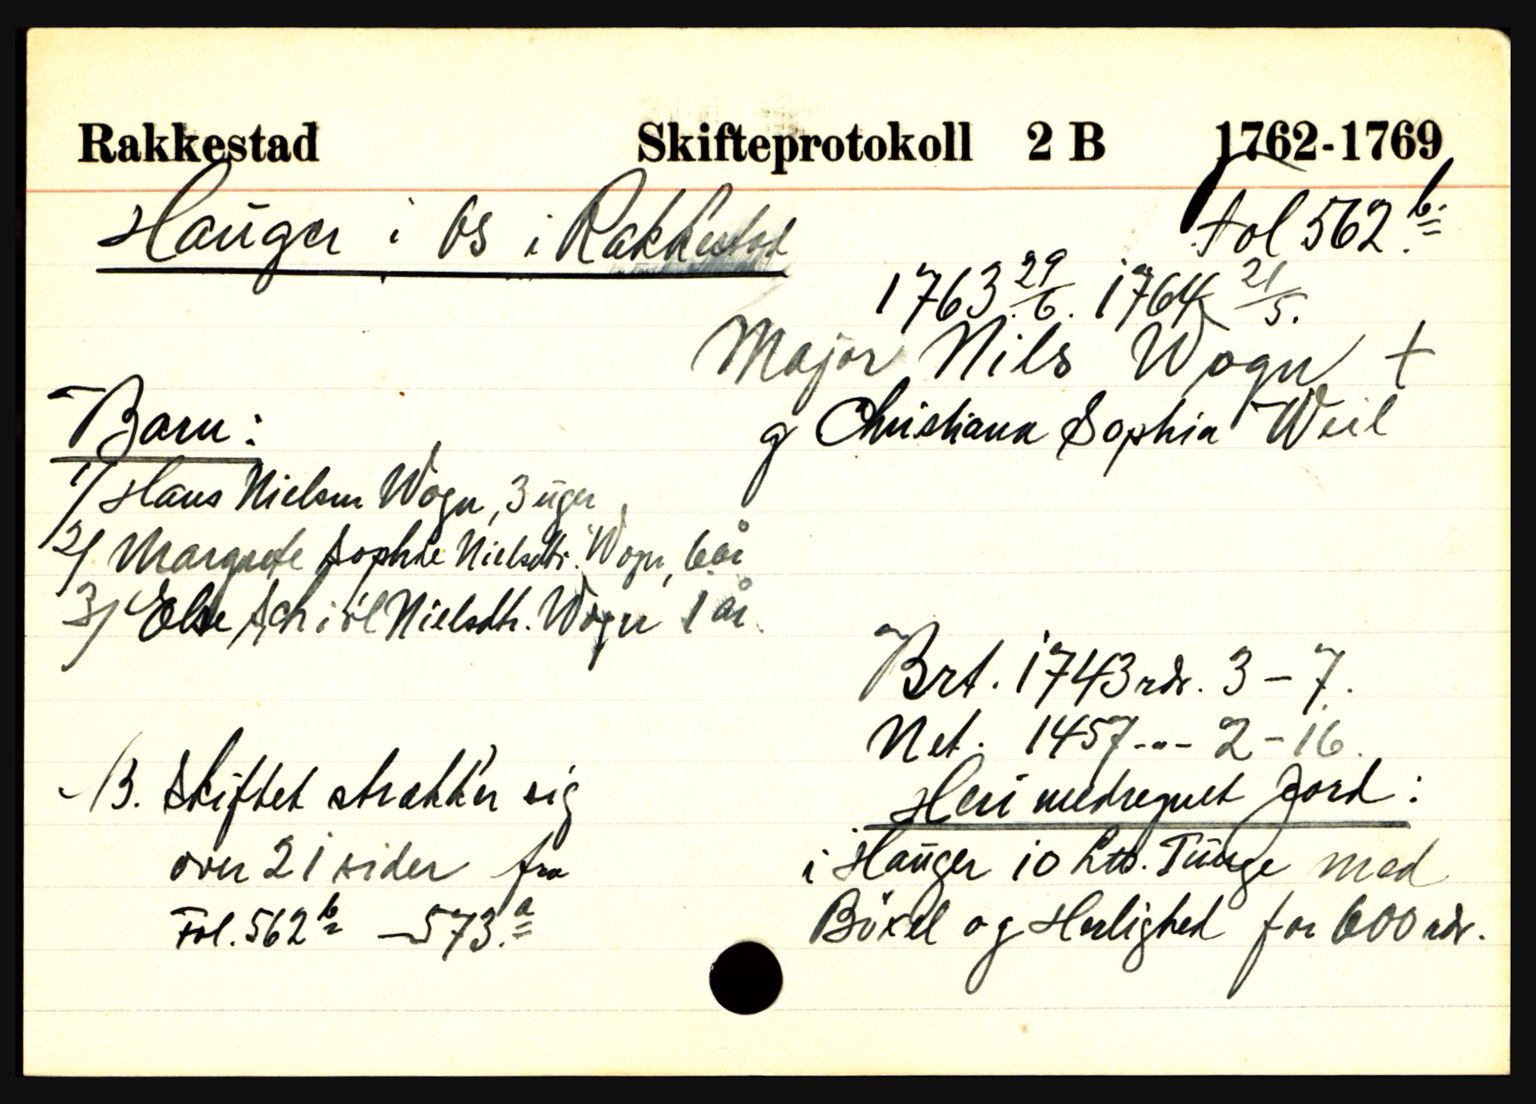 Rakkestad Skifteprotokoll 2 B 1762-1769
Hauger i Os i Rakkestad Fol 562 b.
1763 29/6. 1764 21/5.
Major Nils Wogn +
g Christiana Sophia Weil
Barn:
1/ Hans Nielsen Wogn, 3 uger
2/ Margrete Sophie Nielsdtr. Wogn, 6 år
3/ Else Schiöl Nielsdtr. Wogn 1 år.
Brt. 1743 rdr. 3 - 7.
Net. 1457 -"- 2 - 16.
NB. Skiftet strækker sig
over 21 sider fra
Fol. 562 b - 573. a
Heri medregnet Jord:
i Hauger 10 Ltb. Tunge med
Böxel og Herlighed for 600 rdr.